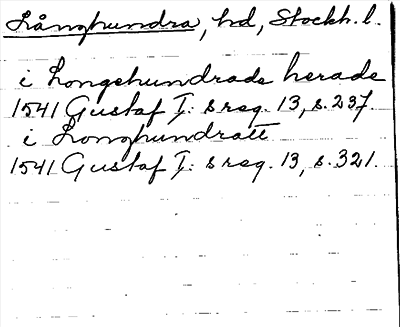 Långhundra, hd, Stockh. l.
i Longehundrade herade
1541 Gustaf I: s reg. 13, s. 237.
i Longhundratt
1541 Gustaf I: s reg. 13, s. 321.